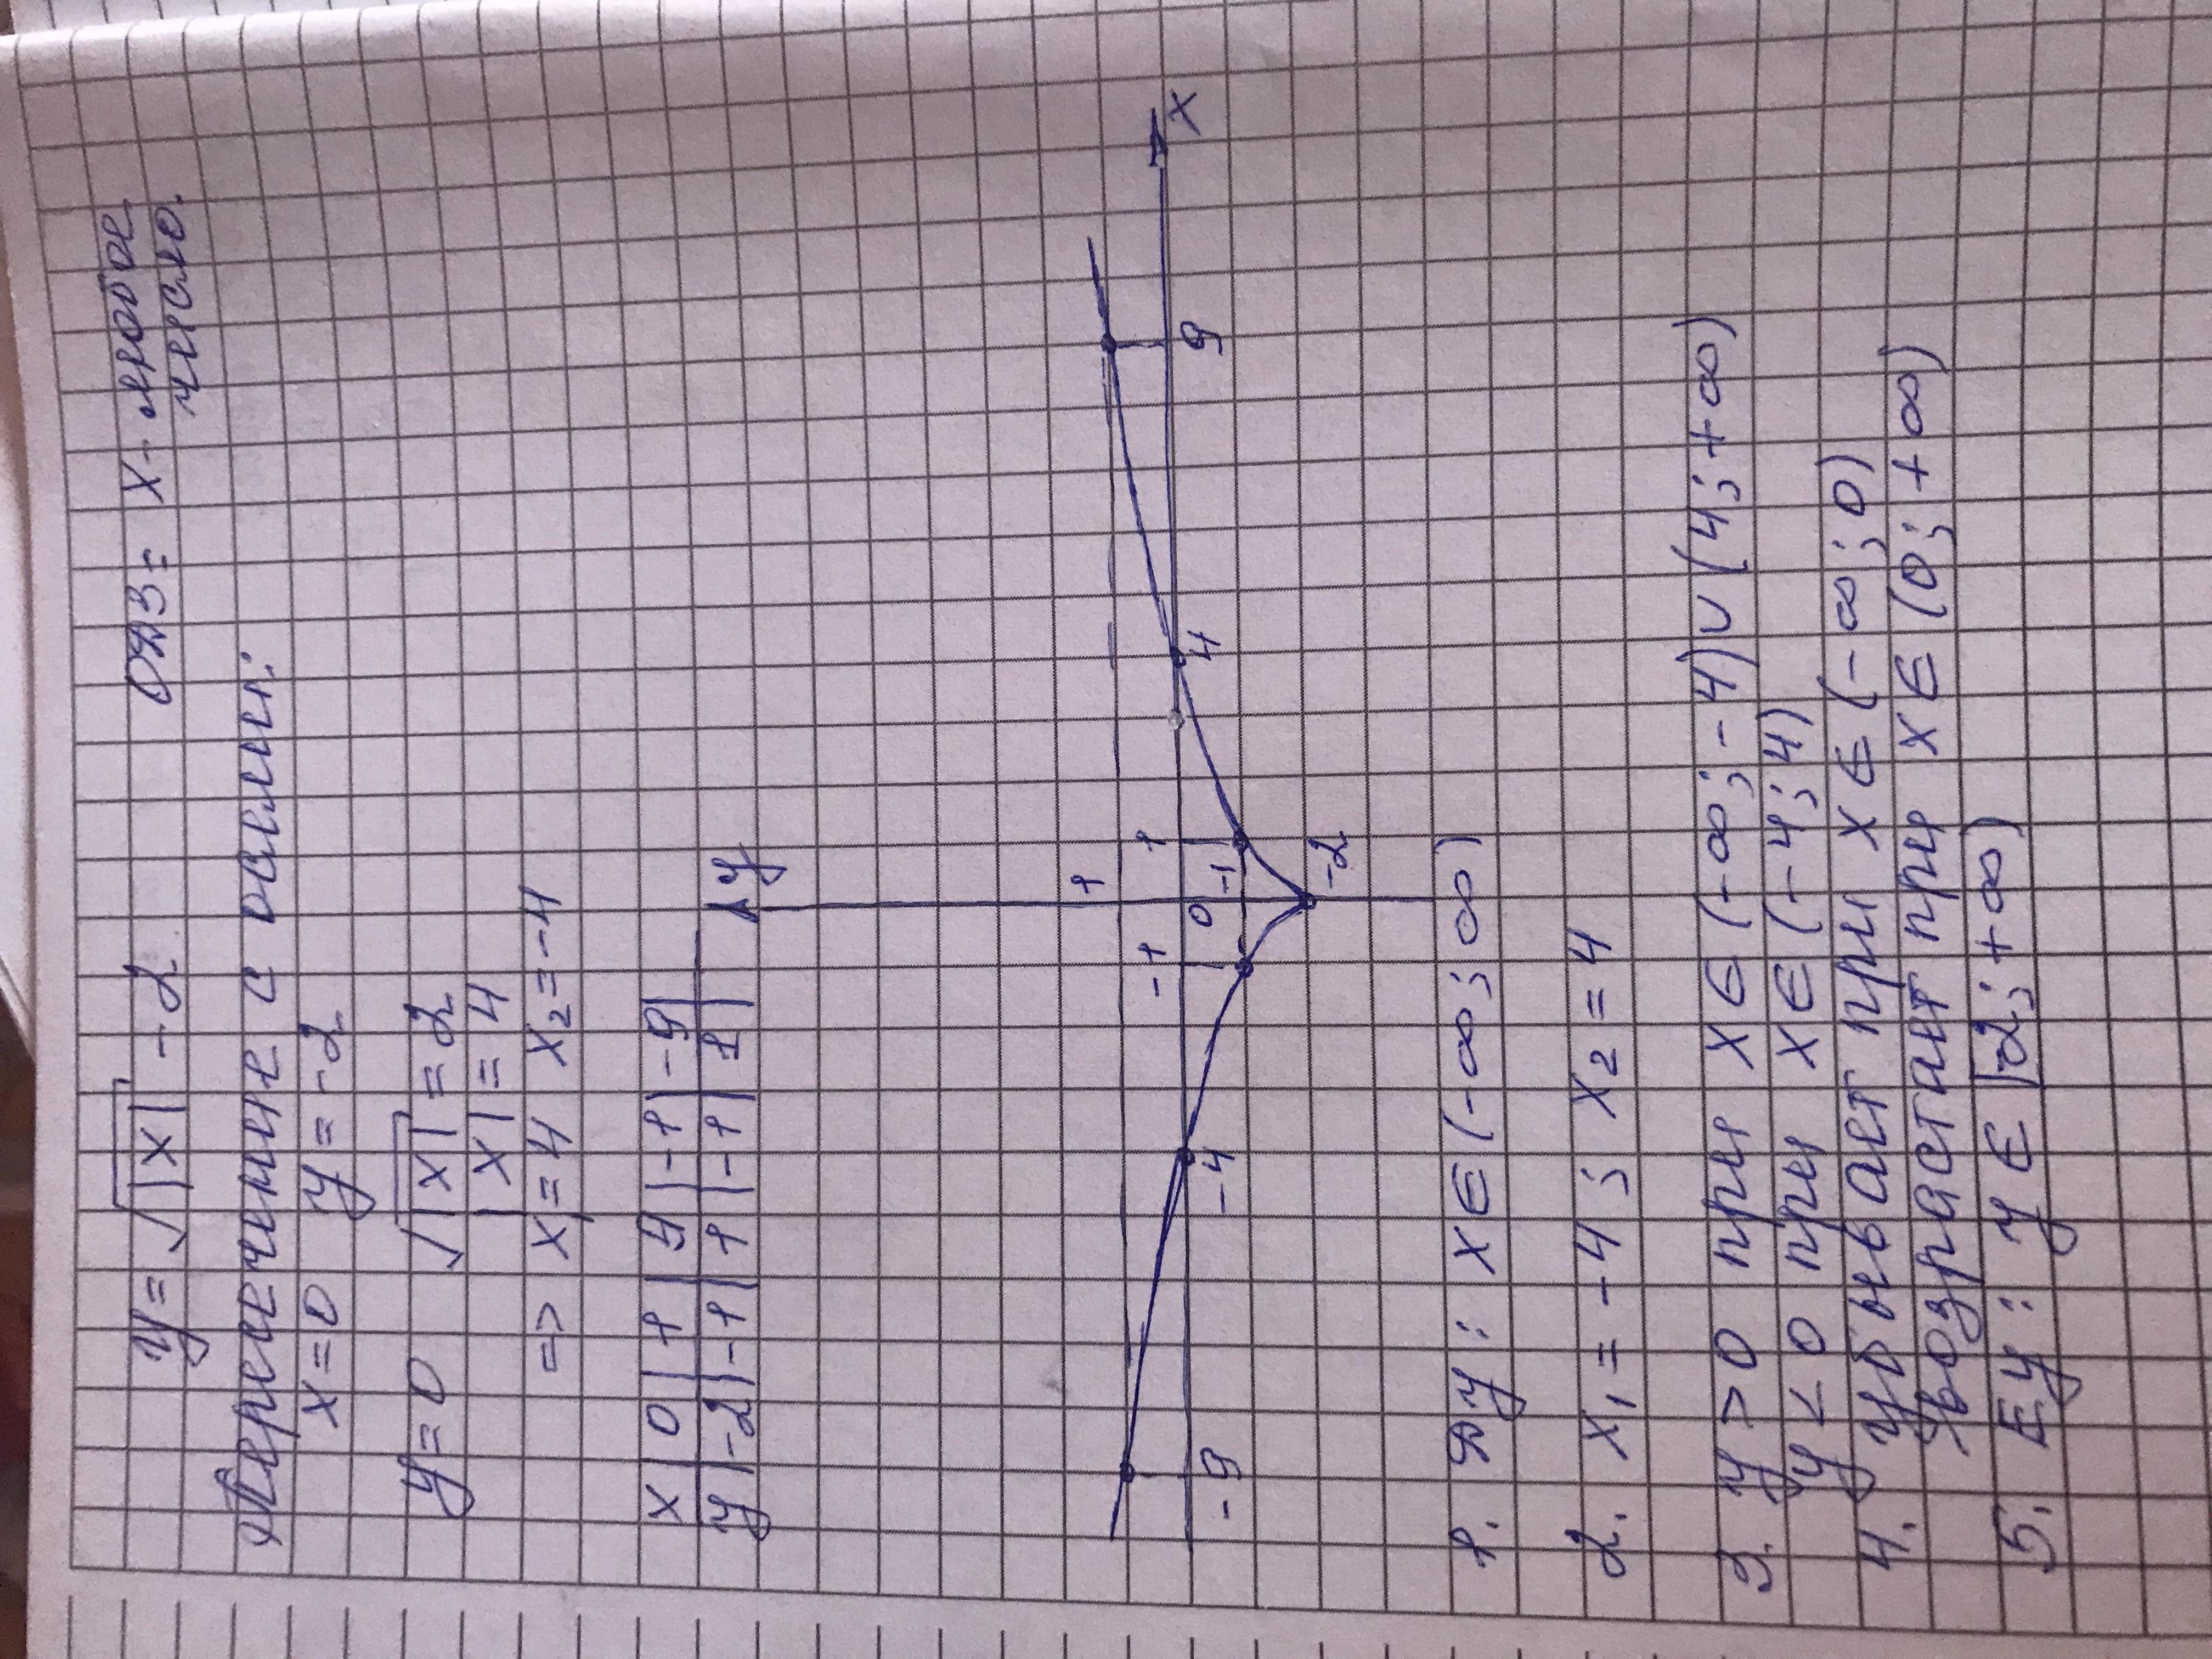 y = √|x| - 2   ОДЗ: x - любое число.
Пересечение с осями:
x = 0   y = -2
y = 0   √|x| = 2
|x| = 4
=> x₁ = 4   x₂ = -4
x | 0 | 1 | 9 | -1 | -9 |
y | -2 | -1 | 1 | -1 | 1 |
y
1
-1   1
-9   -4   0   4   9   x
-1
-2
1. Dy: x ∈ (-∞; ∞)
2. x₁ = -4; x₂ = 4
3. y > 0 при x ∈ (-∞; -4) ∪ (4; +∞)
y < 0 при x ∈ (-4; 4)
4. y убывает при x ∈ (-∞; 0)
возрастает при x ∈ (0; +∞)
5. Ey: y ∈ [-2; +∞)